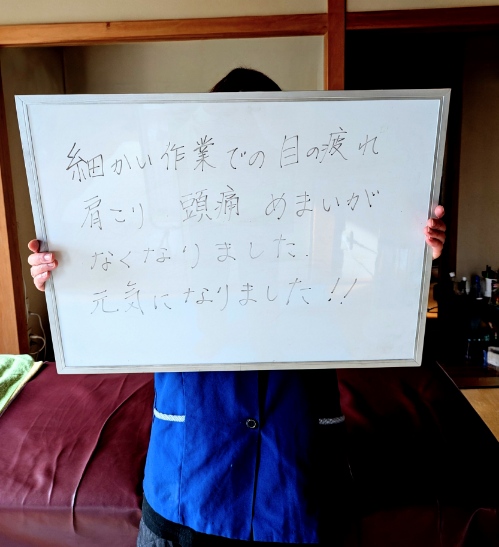 細かい作業での目の疲れ
肩こり 頭痛 めまいが
なくなりました.
元気になりました!!